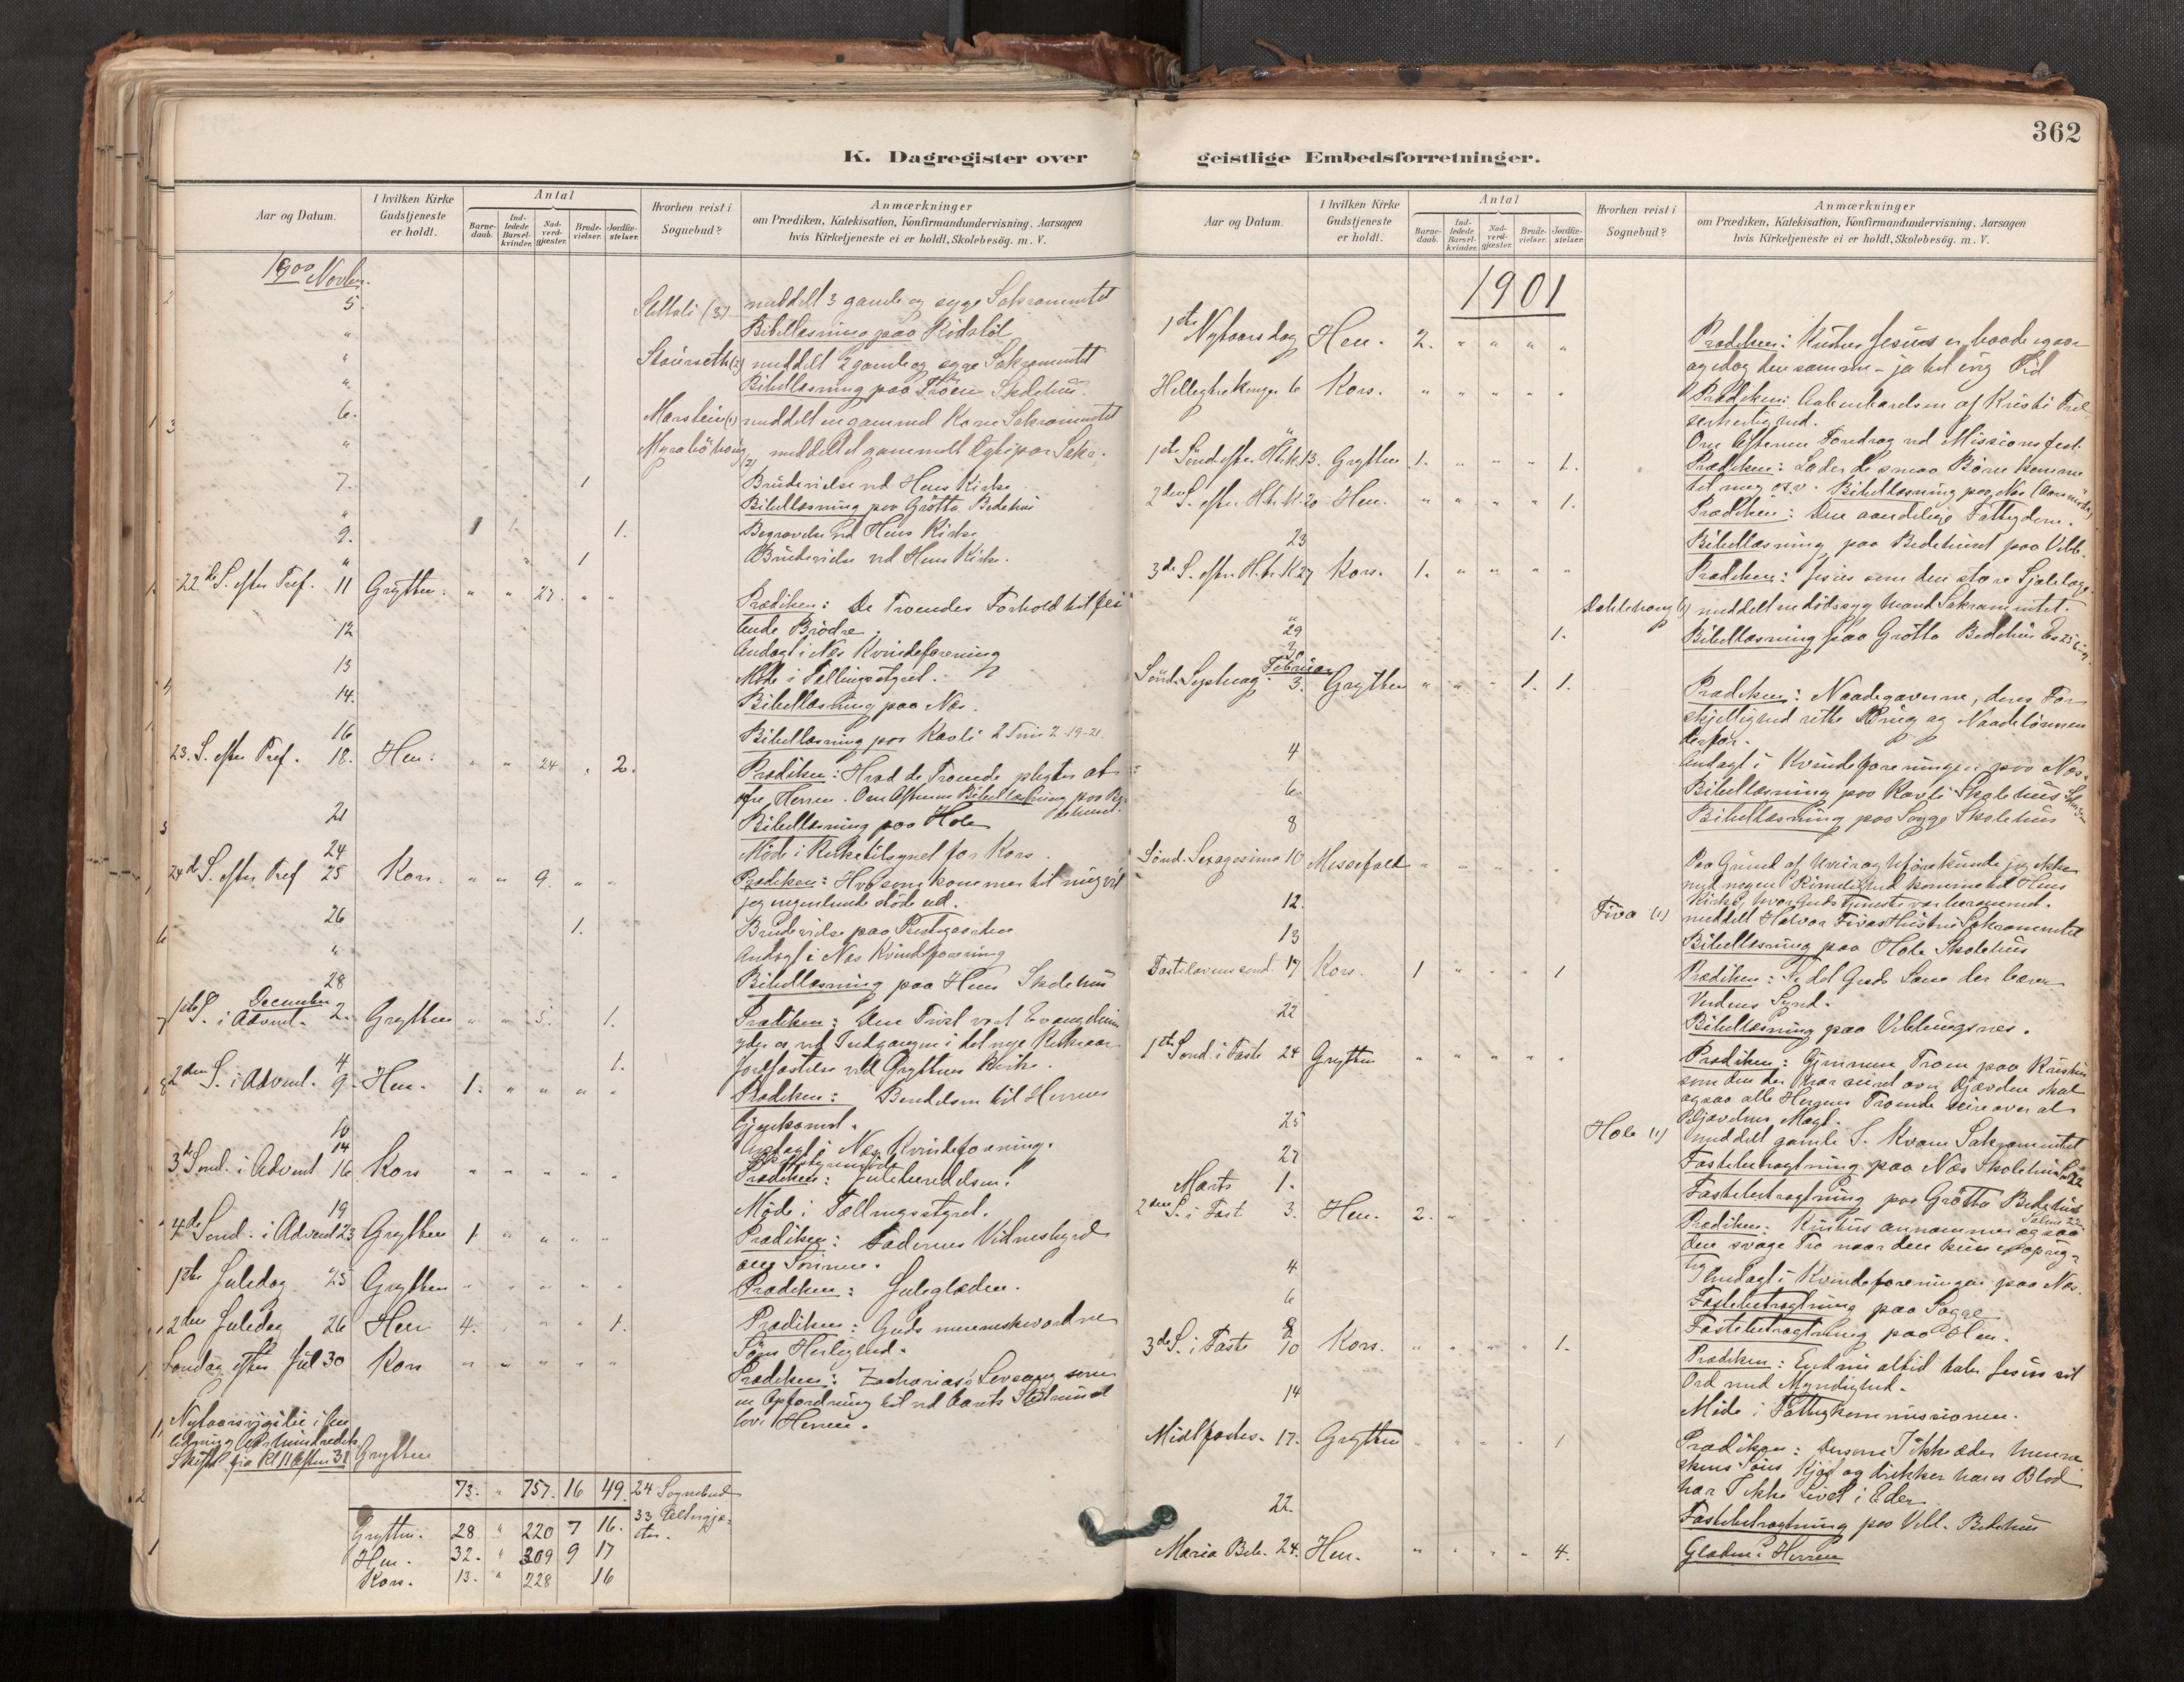 362
K. Dagregister over geistlige Embedsforretninger.
Aar og Datum.
I hvilken Kirke Gudstjeneste er holdt.
Antal
Barne-daab.
Ind-ledede Barsel-kvinder.
Nad-verd-gjæster.
Brude-vielser.
Jordfæ-stelser.
Hvorhen reist i Sognebud?
Anmærkninger
om Prædiken, Katekisation, Konfirmandundervisning. Aarsagen
hvis Kirketjeneste ei er holdt, Skolebesög. m. V.
1900 Novbr.
5. meddelt 3 gamle og syge Sakramentet
" Bibellæsning paa
" meddelt 2 gamle og syge Sakramentet
" Bibellæsning paa Skolehus.
6. Marstein (1) meddelt en gammel Kone Sakramentet
" meddelt et gammelt Ægtepar Sakr.
7. 1 Brudevielse ved Hens Kirke
" Bibellæsning paa Grötta Bedehus
9. 1. Begravelse ved Hens Kirke
" 1 Brudevielse ved Hens Kirke.
22de S. efter Tref. 11 Grytten. " " 27. " " Prædiken: De Troendes Forhold til fei
lende Brödre.
12 Andagt i Næs Kvindeforening
13 Möde i Tællingsstyret.
14. Bibellæsning paa Næs.
16 Bibellæsning paa Kavli 2 Tim 2-19-21.
23. S. efter Tref. 18. Hen. " " 24 . 2. Prædiken: Hvad de Troende pligter at
ofre Herren. Om Aftenen Bibellæsning paa Be-
dehuset.
21 Bibellæsning paa Hole
24 Möde i Kirketilsynet for Kors.
24de S. efter Tref 25 Kors. " " 9. " " Prædiken: Hvo som kommer til mig vil
jeg ingenlunde stöde ud.
26 1. Brudevielse paa Prestegaarden
" Andagt i Næs Kvindeforening
28 Bibellæsning paa Hens Skolehus
December
1ste S. i Advent. 2. Grytten " " 5. 1. Prædiken: Den Tröst vort Evangelium
yder os ved Indgangen i det nye Kirkeaar
4 1. Jordfæstelse ved Gryttens Kirke.
2den S. i Advent. 9. Hen. 1. " " " " Prædiken: Beredelsen til Herrens
Gjenkomst.
10 Andagt i Næs Kvindeforening.
14
3de Sönd. i Advent 16 Kors " " " " " Prædiken: Juleberedelsen.
19 Möde i Tællingsstyret.
4de Sönd. i Advent 23 Grytten 1 " " " " Prædiken: Faderens Vidnesbyrd
om Sönnen.
1ste Juledag 25 Grytten " " " " " Prædiken: Juleglæden.
2den Juledag 26 Hen 4. " " " 1. Prædiken: Guds menneskevordne
Söns Herlighed.
Söndag efter Jul 30 Kors " " " " " Prædiken: Zacharias's Lovsang som
en Opfordring til ved Aarets Slutning at
love Herren.
Nytaarsvigilie i An
ledning af Aarhundredets
Skifte fra Kl 11 Aften 31 Grytten
73. " 757. 16 49. 24 Sognebud
33 Altergjæ-
ster.
Grytten. 28 " 220 7 16.
Hen. 32. " 309 9 17
Kors. 13. " 228 16
1901
1ste Nytaarsdag Hen. 2. " " " " Prædiken: Kristus Jesus er baade igaar
og idag den samme - ja til evig Tid
Helligtrekonger 6 Kors. " " " " " Prædiken: Aabenbarelsen af Kristi Frel
serherlighed.
Om Aftenen Foredrag ved Missionsfest.
1ste Sönd. efter H.3.k. 13. Grytten 1. " " " 1. Prædiken: Lader de smaa Börn komme
til mig osv. Bibellæsning paa Næs (Aarsmöde)
2den S. efter H.tr.K. 20 Hen. " " " " 1. Prædiken: Den aandelige Fattigdom.
23 Bibellæsning paa Bedehuset paa Vebl.
3de S. efter H.tr.K 27 Kors. 1. " " " " Prædiken: Jesus som den store Sjælelæge
" (1) meddelt en dödssyg Mand Sakramentet.
29 1. Bibellæsning paa Grötta Bedehus Es 25 6-9.
30
Februar
Sönd. Septuag. 3. Grytten " " " 1. 1. Prædiken: Naadegaverne, deres For
skjellighed rette Brug og Naadelönnen
derfor.
4 Andagt i Kvindeforeningen paa Næs.
6. Bibellæsning paa Kavli Skolehus
8 Bibellæsning paa Sogge Skolehus
Sönd. Sexagesima 10 Messefald " " " " Paa Grund af Uveir og Uföre kunde jeg ikke
med nogen Rimelighed komme til Hens
Kirke, hvor Guds Tjeneste var berammet.
12. Fiva (1) meddelt Halvor Fivas Hustru Sakramentet
13 Bibellæsning paa Hole Skolehus
Fastelavenssönd. 17 Kors. 1 " " " 1 Prædiken: Se det Guds Lam der bærer
Verdens Synd.
22 Bibellæsning paa Veblungsnes.
1ste Sönd. i Faste 24 Grytten " " " " " Prædiken: Gjennem Troen paa Kristus
som den der har seiret over Djævelen skal
ogsaa alle Herrens Troende seire over al
Djævelens Magt.
25 Hole (1) meddelt gamle S. Kvam Sakramentet
27 Fastebetragtning paa Næs Skolehus
Marts 1. Fastebetragtning paa Grötta Bedehus
Salme 22
2den S. i Fast. 3. Hen. 2. " " " " Prædiken: Kristus annammer ogsaa
den svage Tro naar den kun er oprig-
tig
4 Andagt i Kvindeforeningen paa Næs.
6 Fastebetragtning paa Sogge
8 Fastebetragtning paa Hen.
3de S. i Faste 10 Kors. " " " " 1. Prædiken: Endnu altid taler Jesus sit
Ord med Myndighed.
14 Möde i Fattigkommissionen.
Midtfaste. 17. Grytten " " " " 1 Prædiken: Dersom I ikke æder Menne
skens Söns Kjöd og drikker hans Blod
har I ikke Livet i Eder
22. Fastebetragtning paa Vebl. Bedehus
Maria Beb. 24. Hen. " " " " 4. Glæden i Herren